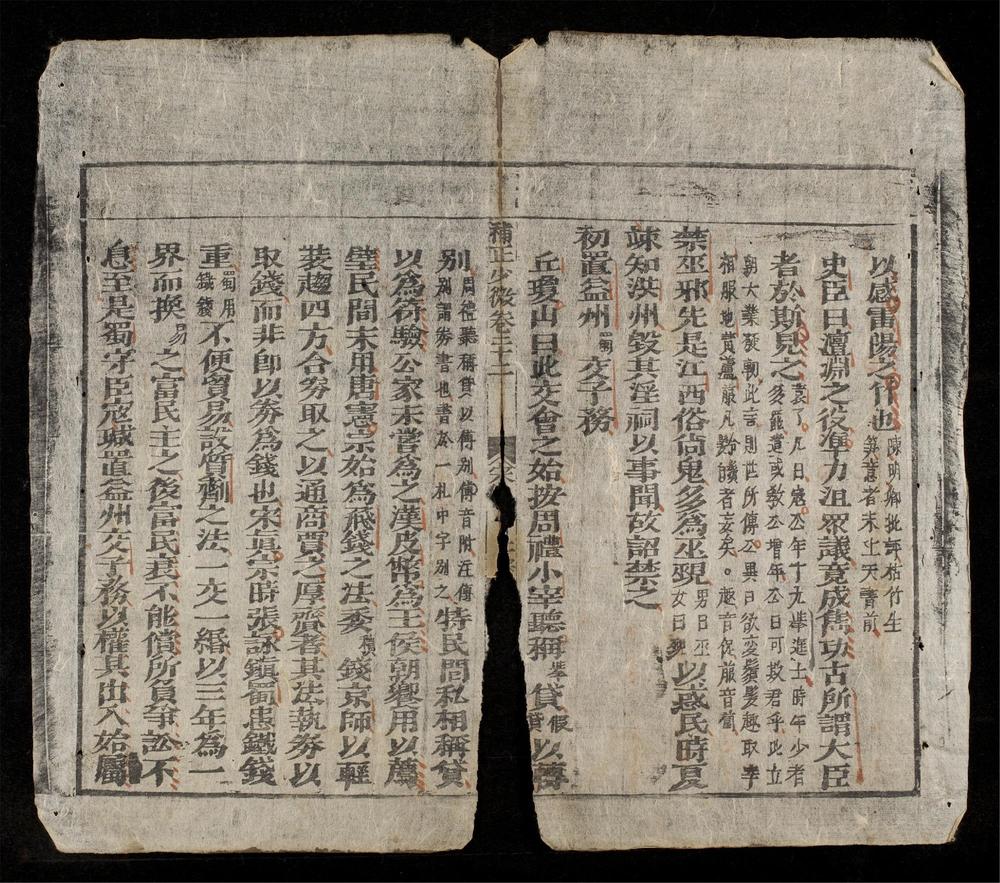 以感雷陽之竹也陳明卿批評枯竹生笋意者未上天書前
史臣曰澶淵之役準力沮眾議竟成雋功古所謂大臣
者於斯見之袁了凡曰寇公年十九舉進士時年少者多罷遣或教公增年公曰可欺君乎此立
朝大業發軔此言則世所傳公異日欲变鬚髮趣取李
相服地黄蘆菔凡黔髭者妄矣。趣音促菔音匐
禁巫邪先是江西俗尙鬼多為巫覡男曰巫女曰覡以惑民時夏
竦知洪州毀其淫祠以事聞故詔禁之
初置益州蜀交子務
丘瓊山曰此交會之始按周禮小宰聽稱舉貸假貸以傳
補正少微卷二十二
別周禮聽稱貸以傅別傅音附註傅別謂券書也書於一札中字別之特民間私相稱貸
以為符驗公家未嘗為之漢皮幣為王侯朝饗用以薦
璧民間未用唐憲宗始為飛錢之法委積錢京師以輕
裝趨四方合券取之以通商賈之厚齎者其法執券以
取錢而非即以券為錢也宋真宗時張詠鎮蜀患鐵錢
重蜀用鐵錢不便貿易設質劑之法一交一緡以三年為一
界而换易之富民主之後富民衰不能償所負爭訟不
息至是蜀守臣寇瑊置益州交子務以權其出入始屬